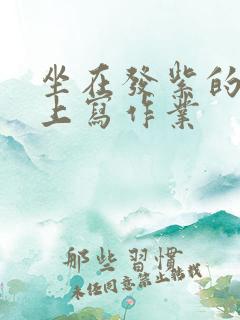 坐在發紫的
上寫作業
那些習慣
未经同意禁止转载